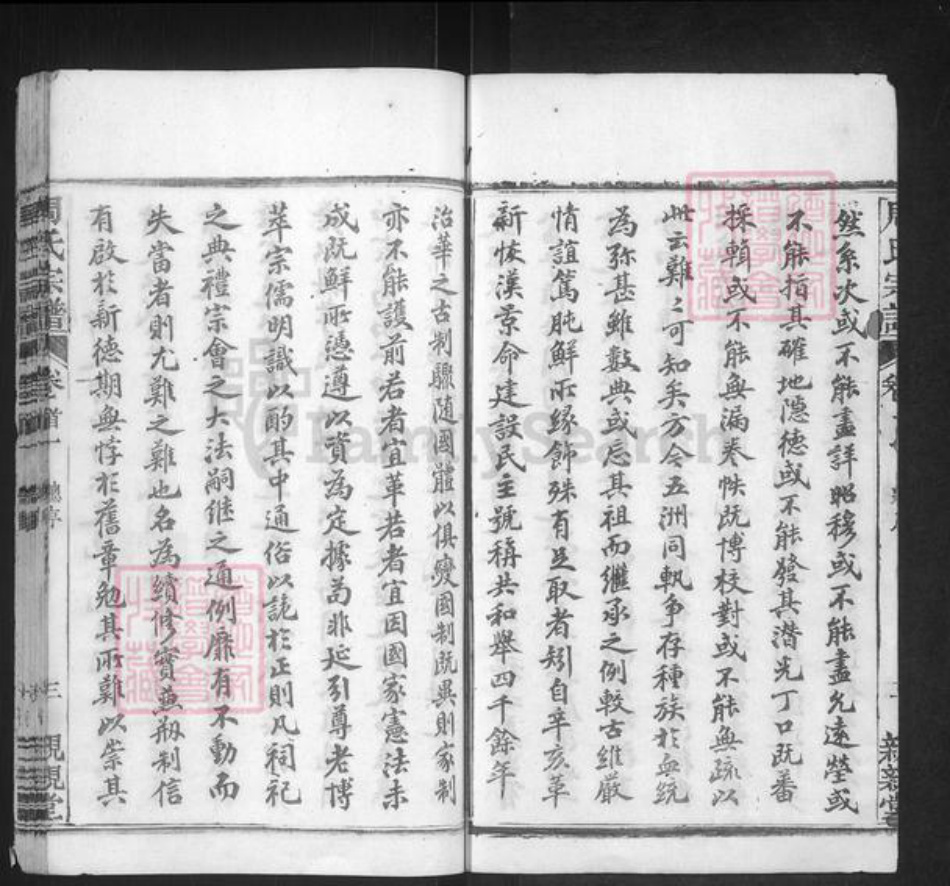 然系次或不能盡詳昭穆或不能盡允遠塋或
不能指其確地隱德或不能發其潛光丁口既番
採輯或不能無漏卷帙既博校對或不能無疏以
此云難〻可知矣方今五洲同軌爭存種族於血統
為弥甚雖數典或忘其祖而繼承之例較古維嚴
情誼篤肫鮮所緣飾殊有足取者矧自辛亥革
新恢漢景命建設民主號稱共和舉四千餘年
治華之古制驟随國體以俱變國制既異則家制
亦不能護前若者宜革若者宜因國家憲法未
成既鮮所憑遵以資為定據苟非延引尊老博
萃宗儒明識以酌其中通俗以詭於正則凡祠祀
之典禮宗會之大法嗣继之通例靡有不動而
失當者則尤難之難也名為續修實無剏制信
有啟於新德期無悖於舊章勉其所難以崇其
周氏宗譜
卷首一
總序
三
親親堂